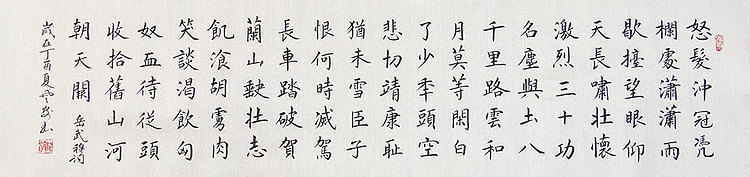 怒髮沖冠凴
欄處瀟瀟雨
歇擡望眼仰
天長嘯壯懷
激烈三十功
名塵與土八
千里路雲和
月莫等閑白
了少秊頭空
悲切靖康耻
猶未雪臣子
恨何時滅駕
長車踏破賀
蘭山缺壯志
飢飡胡虜肉
笑談渴飲匈
奴血待從頭
收拾舊山河
朝天闕 岳武穆詞
歲在丁酉夏